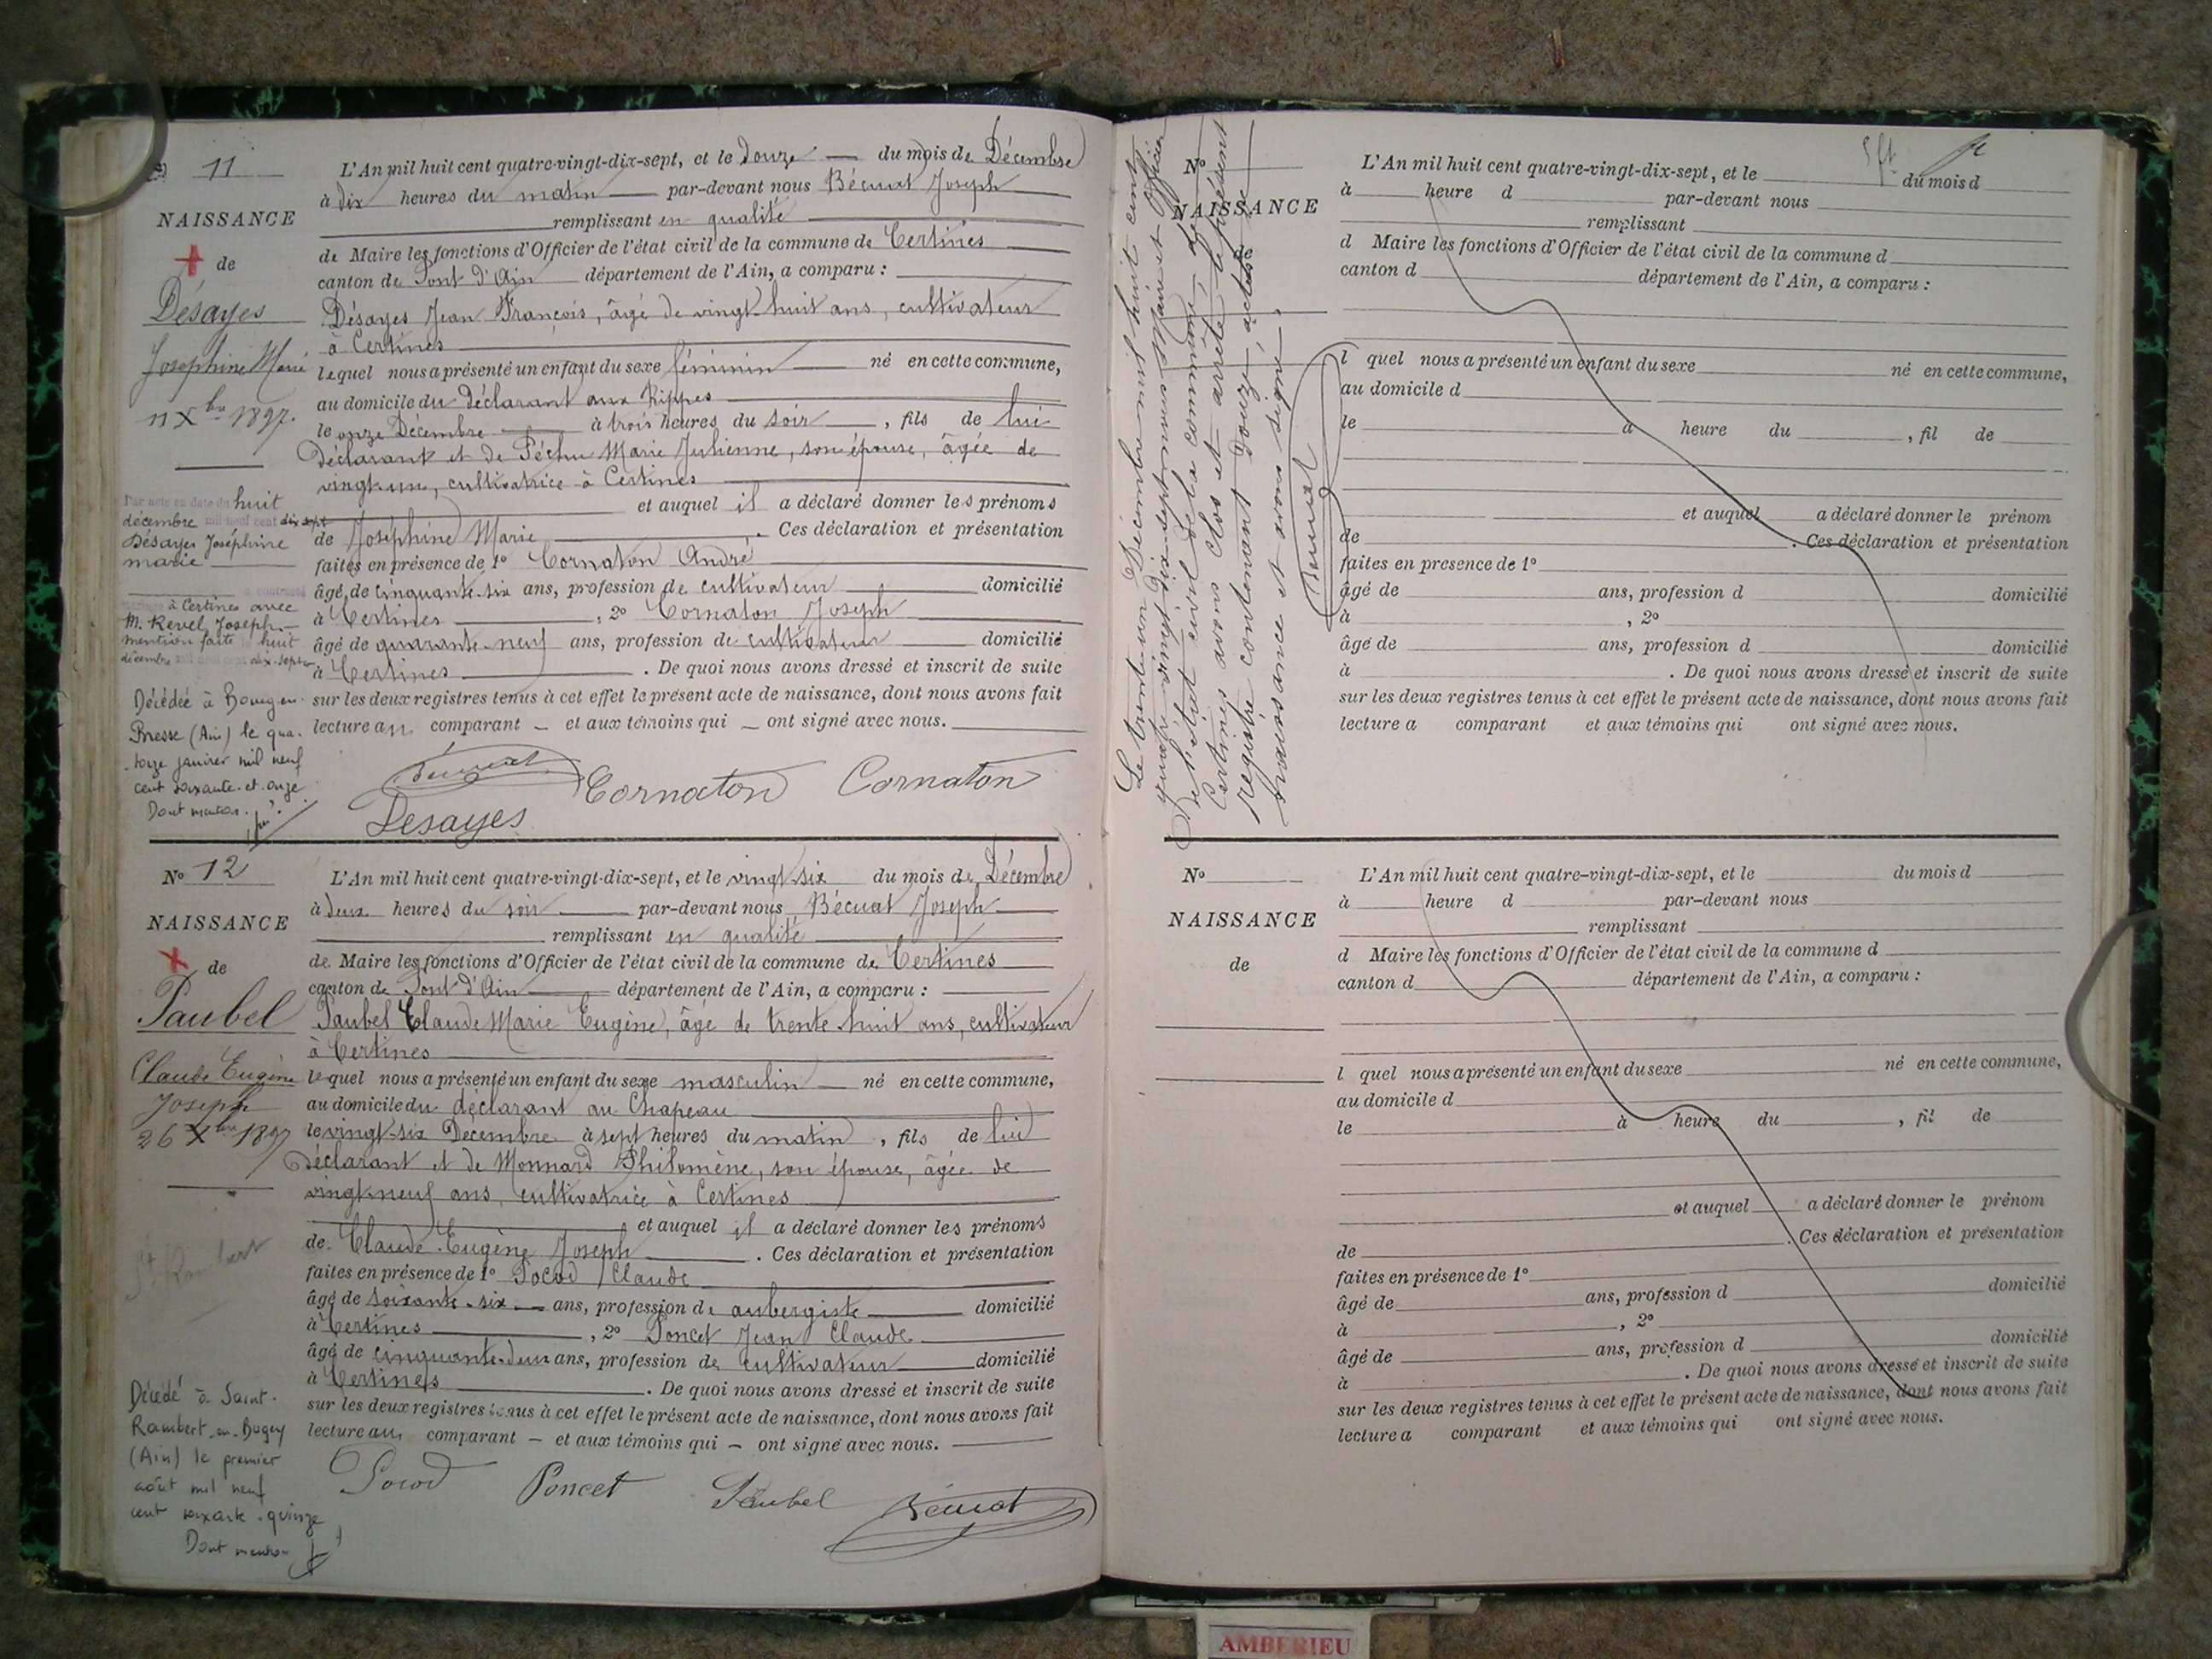 N° 11
NAISSANCE
de
Désayes
Joséphine Marie
11 Xbre 1897.
Par acte en date du huit
décembre mil neuf cent dix-sept
Désayes Joséphine
marie
a contracté
à Certines avec
M. Revel Joseph
mention faite le huit
décembre mil neuf cent dix-sept
Décédée à Bourg-en-
Bresse (Ain) le qua-
torze janvier mil neuf
cent soixante-et-onze
Dont mention.
L'An mil huit cent quatre-vingt-dix-sept, et le douze du mois de Décembre
à dix heures du matin par-devant nous Bécuat Joseph
remplissant en qualité
de Maire les fonctions d'Officier de l'état civil de la commune de Certines
canton de Pont d'Ain département de l'Ain, a comparu :
Désayes Jean François, âgé de vingt-huit ans, cultivateur
à Certines
lequel nous a présenté un enfant du sexe féminin né en cette commune,
au domicile du déclarant aux Rippes
le onze Décembre à trois heures du soir, fils de lui
déclarant et de Péchu Marie Julienne, son épouse, âgée de
vingt-un, cultivatrice à Certines
et auquel il a déclaré donner les prénoms
de Joséphine Marie. Ces déclaration et présentation
faites en présence de 1° Cornaton André
âgé de cinquante-six ans, profession de cultivateur domicilié
à Certines, 2° Cornaton Joseph
âgé de quarante-neuf ans, profession de cultivateur domicilié
à Certines. De quoi nous avons dressé et inscrit de suite
sur les deux registres tenus à cet effet le présent acte de naissance, dont nous avons fait
lecture au comparant – et aux témoins qui – ont signé avec nous.
Bécuat Cornaton Cornaton
Desayes
N° 12
NAISSANCE
de
Paubel
Claude Eugène
Joseph
26 Xbre 1897
St Rambert
Décédé à Saint-
Rambert-en-Bugey
(Ain) le premier
août mil neuf
cent soixante-quinze
Dont mention
L'An mil huit cent quatre-vingt-dix-sept, et le vingt-six du mois de Décembre
à deux heures du soir par-devant nous Bécuat Joseph
remplissant en qualité
de Maire les fonctions d'Officier de l'état civil de la commune de Certines
canton de Pont d'Ain département de l'Ain, a comparu :
Paubel Claude Marie Eugène, âgé de trente-huit ans, cultivateur
à Certines
lequel nous a présenté un enfant du sexe masculin né en cette commune,
au domicile du déclarant au Chapeau
le vingt-six Décembre à sept heures du matin, fils de lui
déclarant et de Monnard Philomène, son épouse, âgée de
vingt-neuf ans, cultivatrice à Certines
et auquel il a déclaré donner les prénoms
de Claude Eugène Joseph. Ces déclaration et présentation
faites en présence de 1° Pocod Claude
âgé de soixante-six ans, profession de aubergiste domicilié
à Certines, 2° Poncet Jean Claude
âgé de cinquante-deux ans, profession de cultivateur domicilié
à Certines. De quoi nous avons dressé et inscrit de suite
sur les deux registres tenus à cet effet le présent acte de naissance, dont nous avons fait
lecture au comparant – et aux témoins qui – ont signé avec nous.
Pocod Poncet Paubel Bécuat
Le trente-un Décembre mil huit cent
quatre-vingt-dix-sept nous Maire et Officier
de l'état civil de la commune de
Certines avons clos et arrêté le présent
registre contenant douze actes de
naissance et avons signé.
Bécuat
N°
NAISSANCE
de
L'An mil huit cent quatre-vingt-dix-sept, et le du mois d
à heure d par-devant nous
remplissant
d Maire les fonctions d'Officier de l'état civil de la commune d
canton d département de l'Ain, a comparu :
l quel nous a présenté un enfant du sexe né en cette commune,
au domicile d
le à heure du , fil de
et auquel a déclaré donner le prénom
de . Ces déclaration et présentation
faites en présence de 1°
âgé de ans, profession d domicilié
à , 2°
âgé de ans, profession d domicilié
à . De quoi nous avons dressé et inscrit de suite
sur les deux registres tenus à cet effet le présent acte de naissance, dont nous avons fait
lecture a comparant et aux témoins qui ont signé avec nous.
N°
NAISSANCE
de
L'An mil huit cent quatre-vingt-dix-sept, et le du mois d
à heure d par-devant nous
remplissant
d Maire les fonctions d'Officier de l'état civil de la commune d
canton d département de l'Ain, a comparu :
l quel nous a présenté un enfant du sexe né en cette commune,
au domicile d
le à heure du , fil de
et auquel a déclaré donner le prénom
de . Ces déclaration et présentation
faites en présence de 1°
âgé de ans, profession d domicilié
à , 2°
âgé de ans, profession d domicilié
à . De quoi nous avons dressé et inscrit de suite
sur les deux registres tenus à cet effet le présent acte de naissance, dont nous avons fait
lecture a comparant et aux témoins qui ont signé avec nous.
AMBERIEU